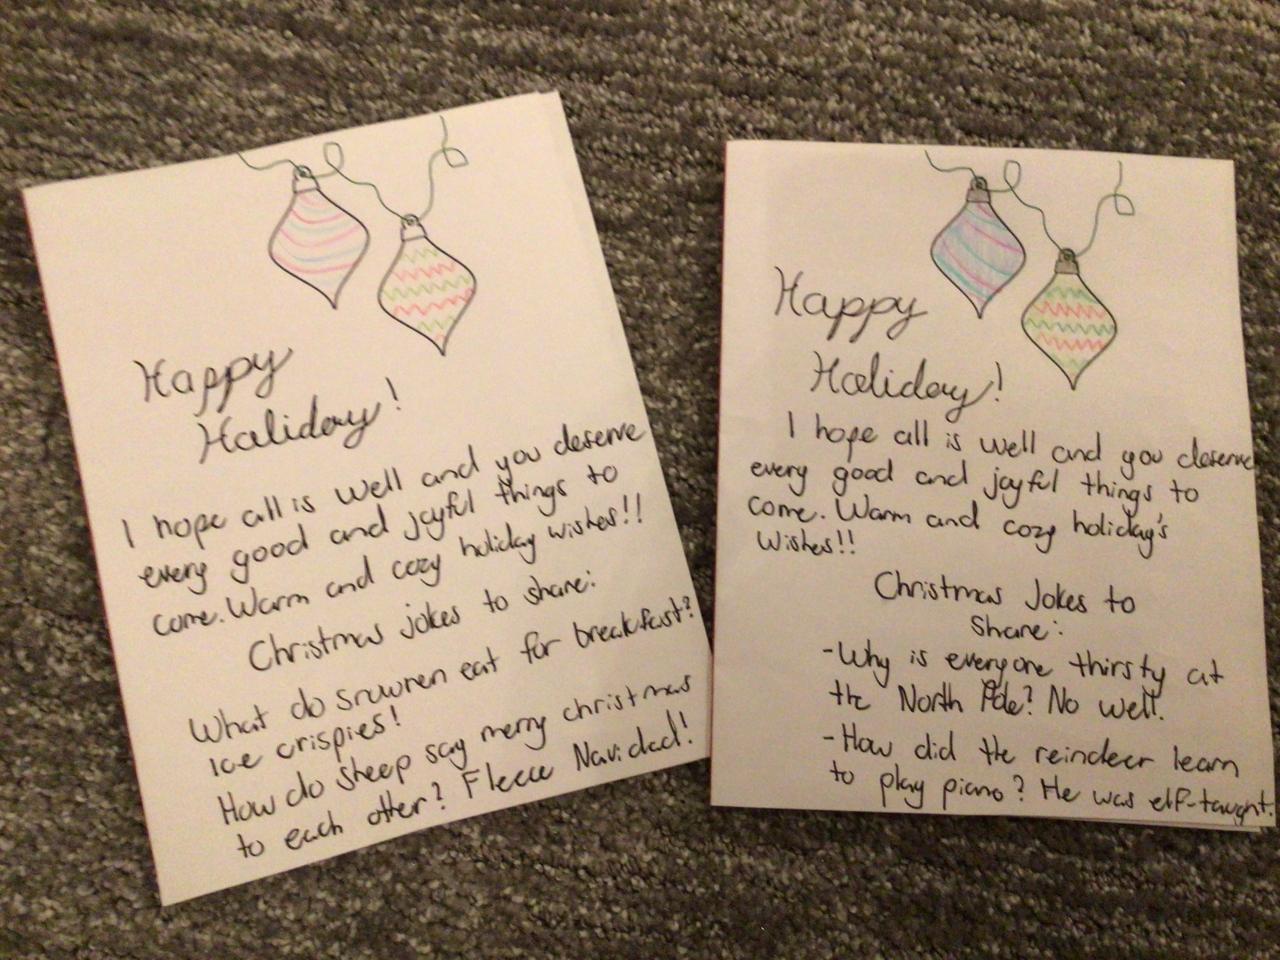 Happy
Holiday!
I hope all is well and you deserve
every good and joyful things to
come. Warm and cozy holiday wishes!!
Christmas jokes to share:
What do snowmen eat for breakfast?
Ice crispies!
How do sheep say merry christmas
to each other? Fleece Navidad!
Happy
Holiday!
I hope all is well and you deserve
every good and joyful things to
come. Warm and cozy holiday's
Wishes!!
Christmas Jokes to
Share:
-Why is everyone thirsty at
the North Pole? No well.
-How did the reindeer learn
to play piano? He was elf-taught.